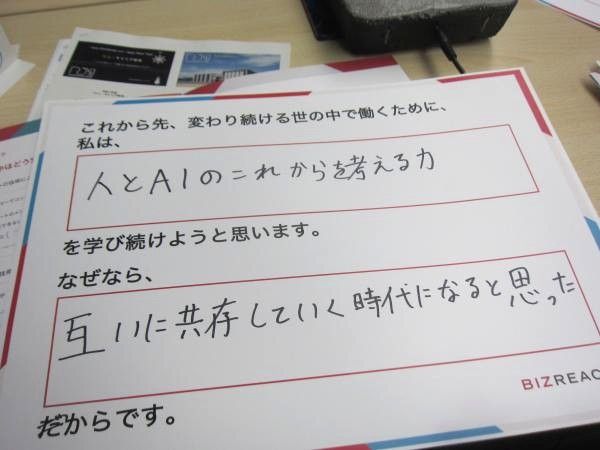 これから先、変わり続ける世の中で働くために、
私は、
人とAIのこれからを考える力
を学び続けようと思います。
なぜなら、
互いに共存していく時代になると思った
BIZREAC
だからです。